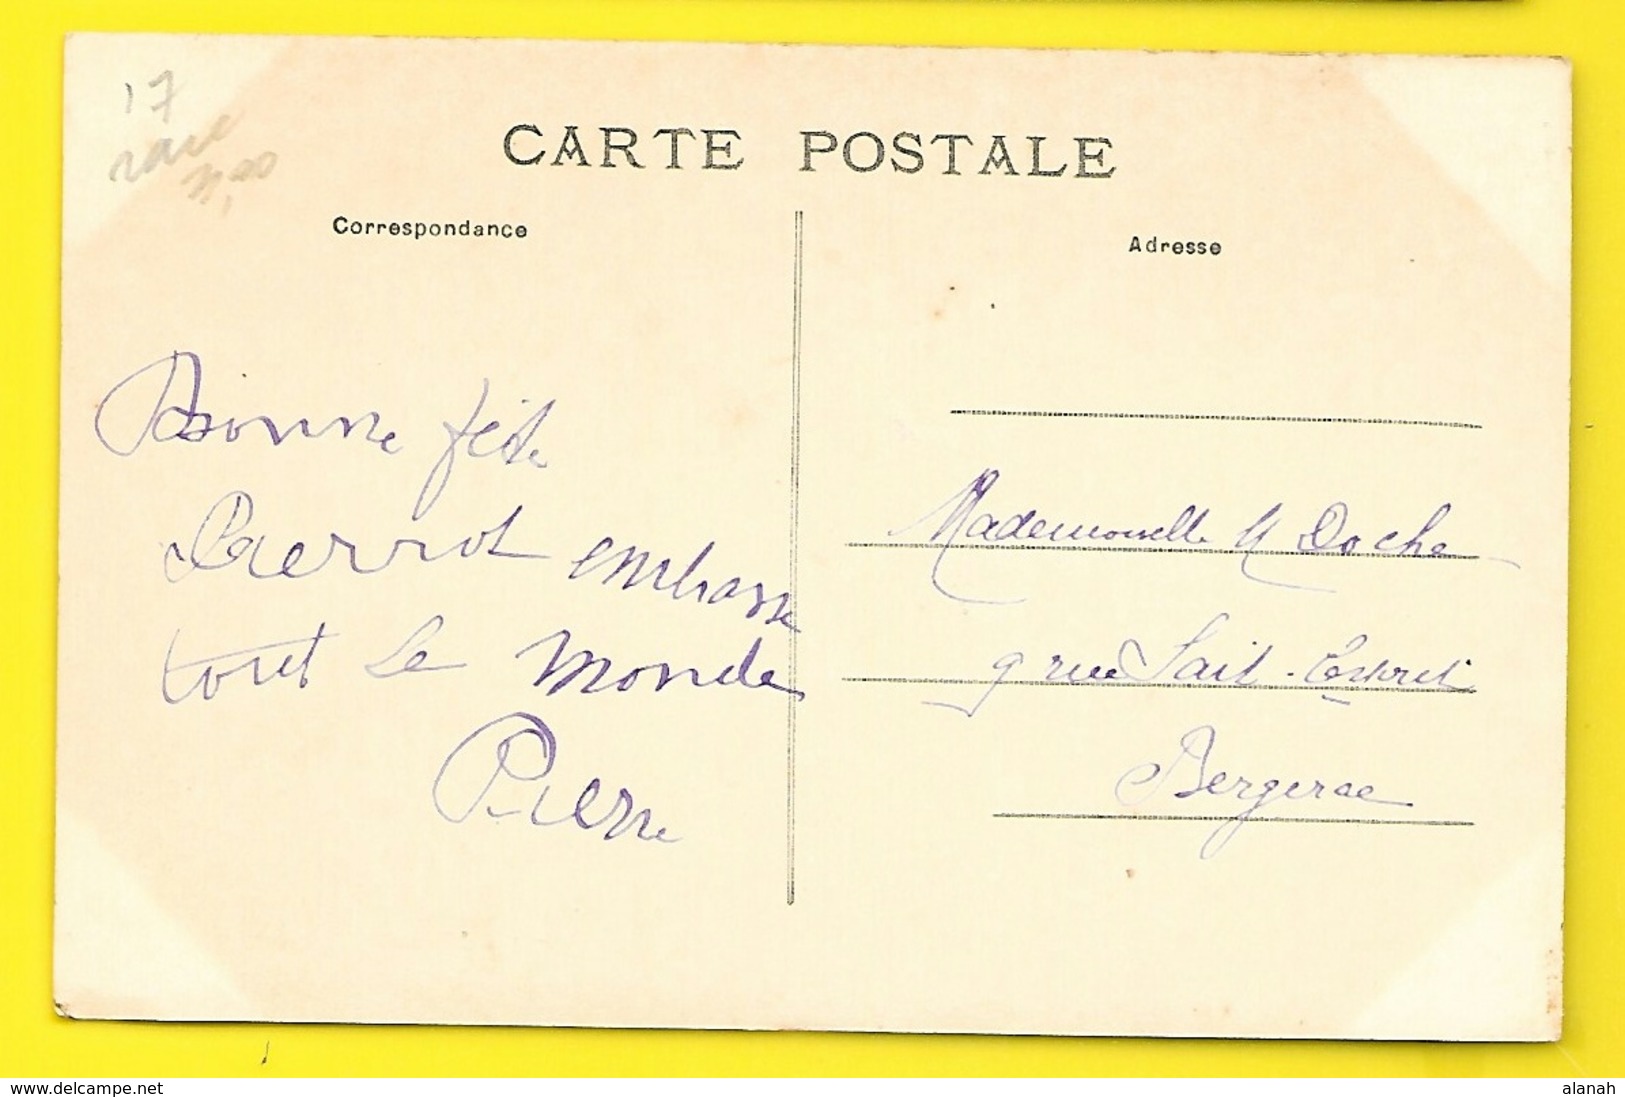 17
rare
CARTE POSTALE
Correspondance
Bonne fête
Pierrot embrasse
tout le monde
Pierre
Adresse
Mademoiselle M Doche
9 rue Sait-Esprit
Bergerac
www.delcampe.net
alanah